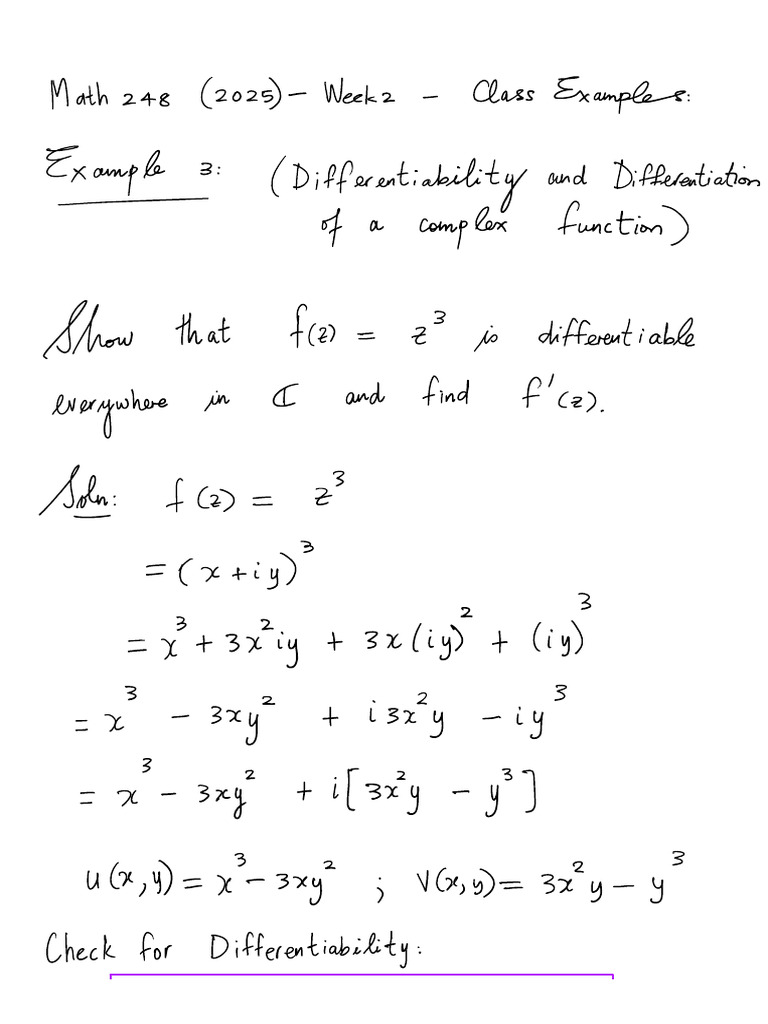 Math 248 (2025) – Week 2 – Class Examples:
Example 3: (Differentiability and Differentiation
of a complex function)
Show that f(z) = z³ is differentiable
everywhere in ℂ and find f'(z).
Soln: f(z) = z³
= (x + iy)³
= x³ + 3x²iy + 3x(iy)² + (iy)³
= x³ − 3xy² + i3x²y − iy³
= x³ − 3xy² + i[3x²y − y³]
u(x,y) = x³ − 3xy² ; V(x,y) = 3x²y − y³
Check for Differentiability: